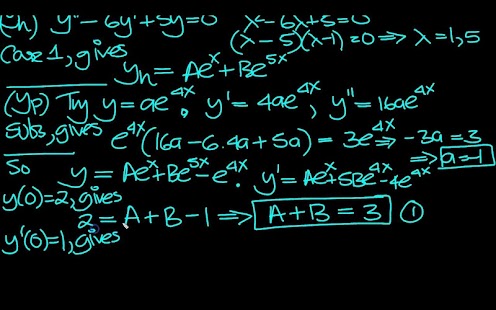 (yh) y'' - 6y' + 5y = 0 λ² - 6λ + 5 = 0
Case 1, gives (λ - 5)(λ - 1) = 0 ⟹ λ = 1, 5
yh = Ae^x + Be^5x
(Yp) Try y = ae^4x. y' = 4ae^4x, y'' = 16ae^4x
subs, gives e^4x(16a - 6.4a + 5a) = 3e^4x ⟹ -3a = 3
⟹ a = -1
So y = Ae^x + Be^5x - e^4x. y' = Ae^x + 5Be^4x - 4e^4x
y(0) = 2, gives
2 = A + B - 1 ⟹ A + B = 3 ①
y'(0) = 1, gives